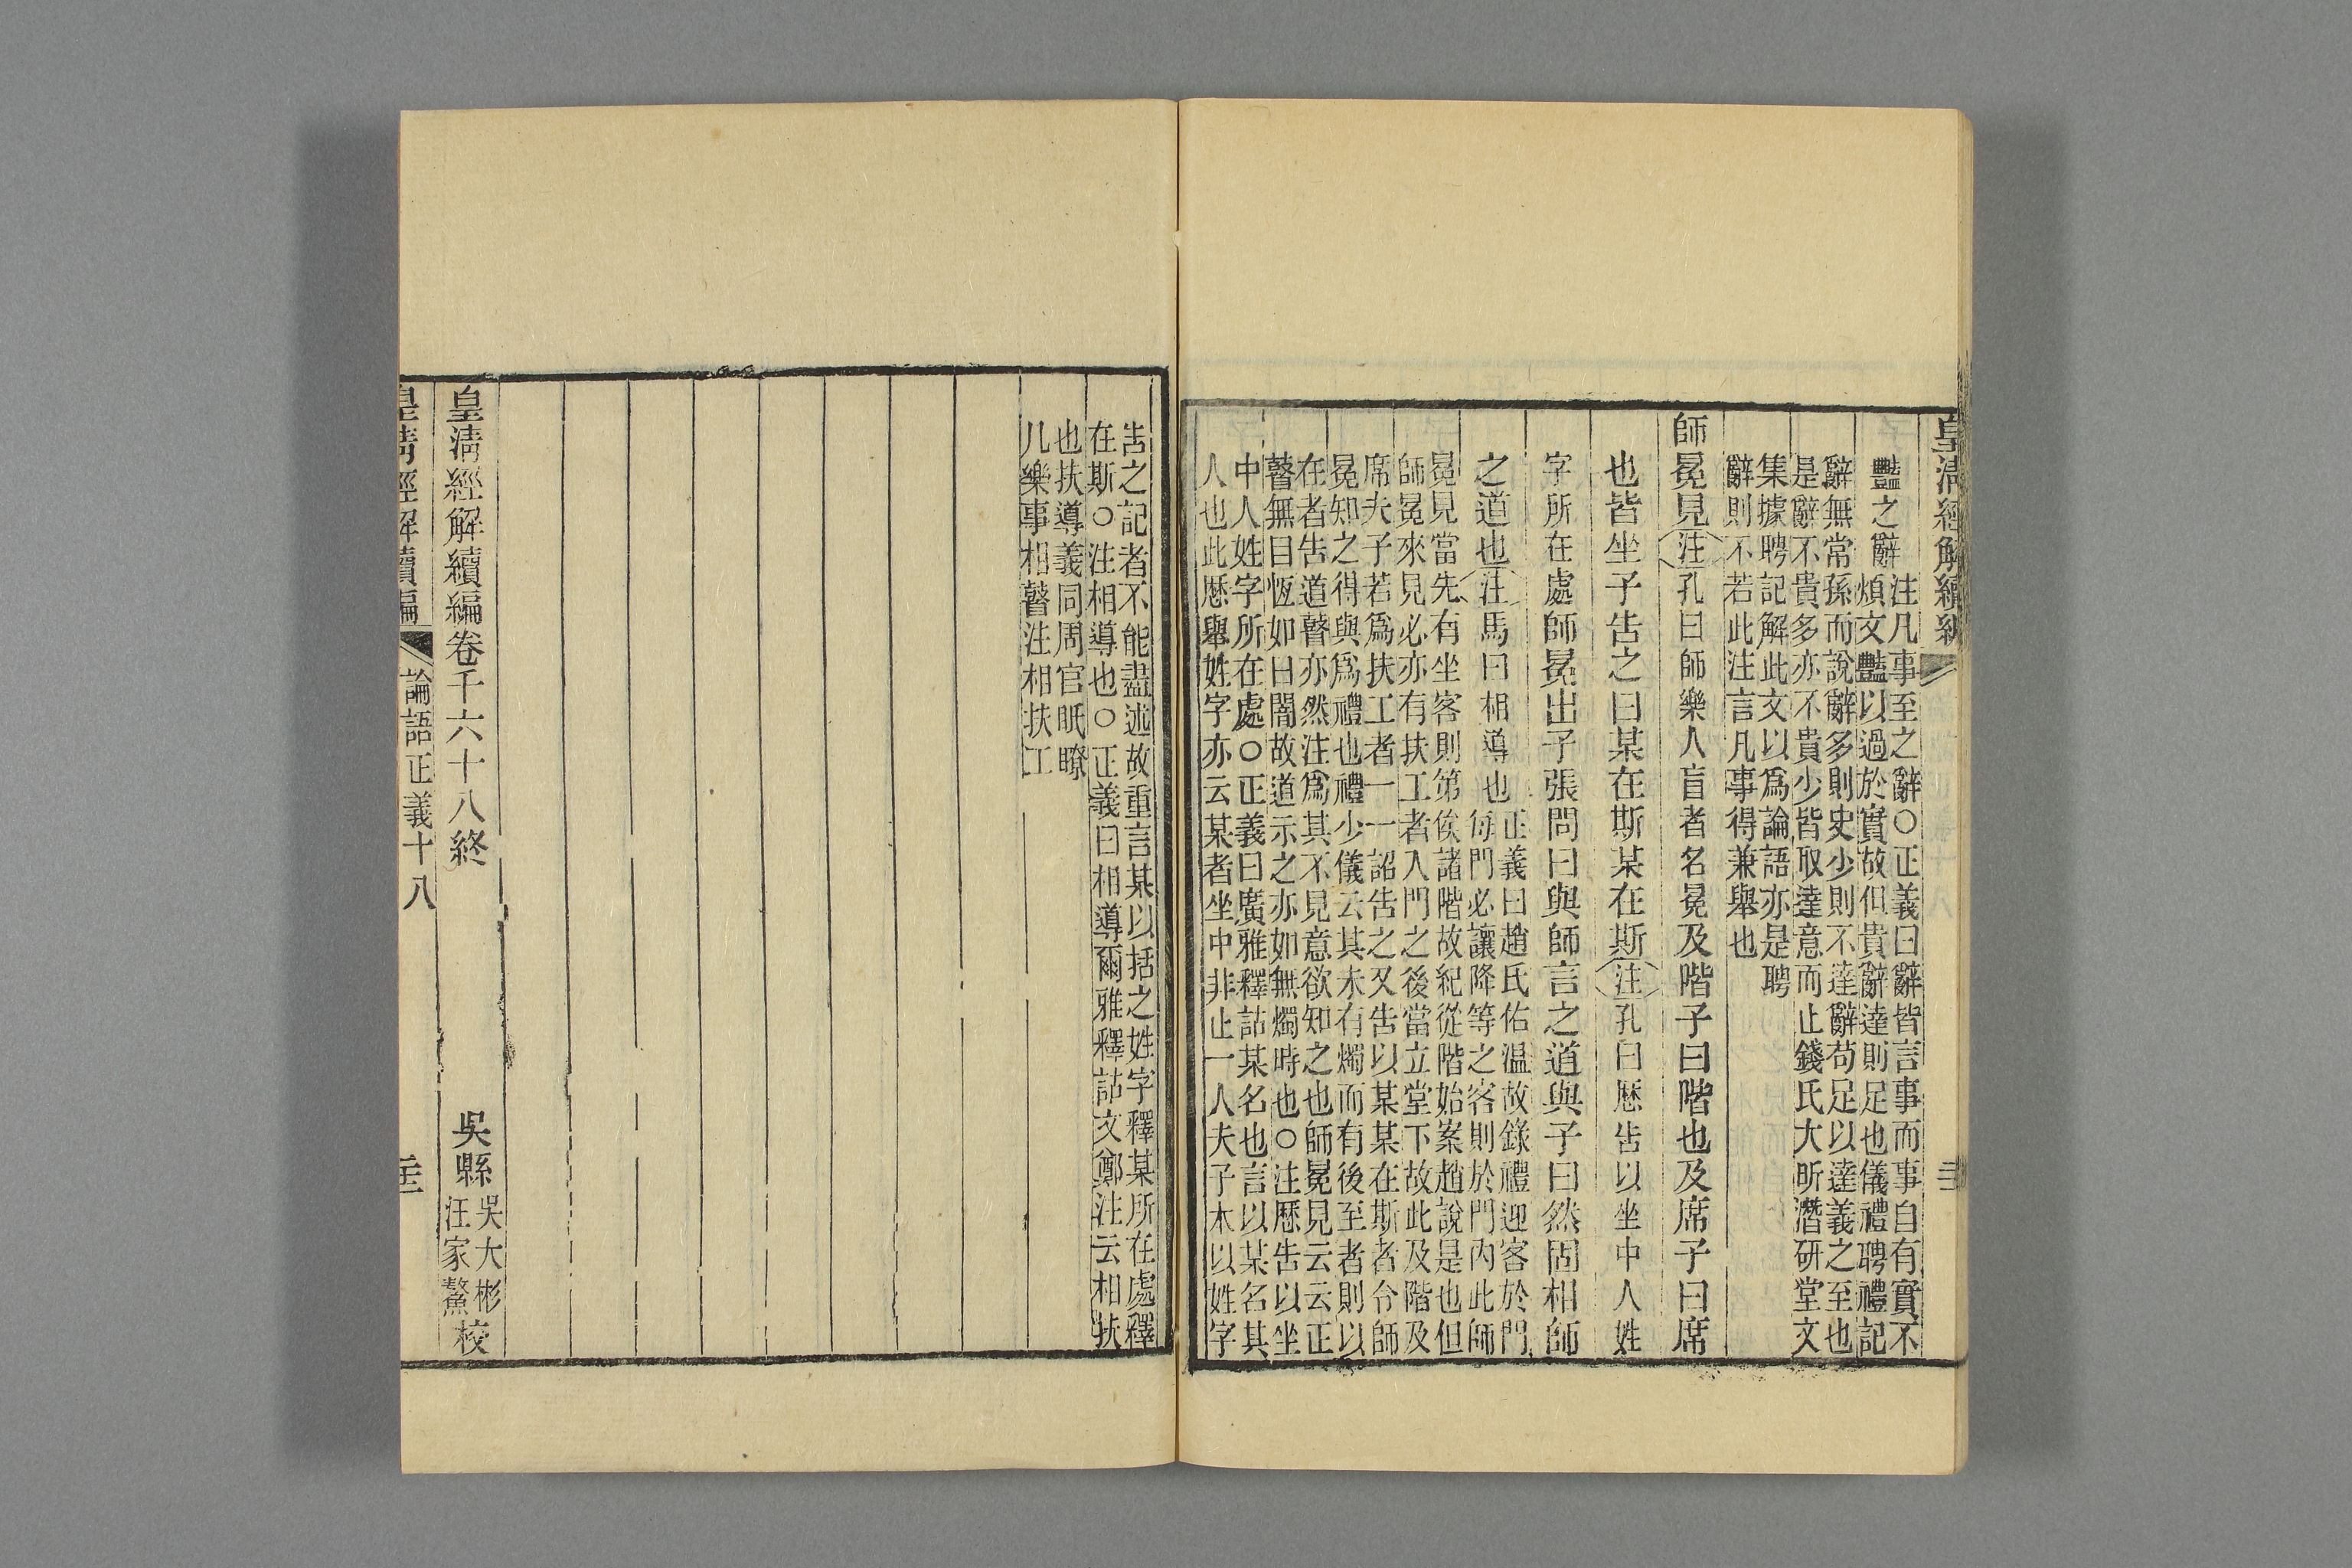 皇清經解續編
豔之辭
注凡事至之辭○正義曰辭皆言事而事自有實不
煩文豔以過於實故但貴辭達則足也儀禮聘禮記
辭無常孫而說辭多則史少則不達辭苟足以達義之至也
是辭不貴多亦不貴少皆取達意而止錢氏大昕潛研堂文
集據聘記解此文以爲論語亦是聘
辭則不若此注言凡事得兼舉也
師冕見注孔曰師樂人盲者名冕及階子曰階也及席子曰席
也皆坐子告之曰某在斯某在斯注孔曰歷告以坐中人姓
字所在處師冕出子張問曰與師言之道與子曰然固相師
之道也注馬曰相導也
正義曰趙氏佑溫故錄禮迎客於門
每門必讓降等之客則於門內此師
冕見當先有坐客則第俟諸階故紀從階始案趙說是也但
師冕來見必亦有扶工者入門之後當立堂下故此及階及
席夫子若爲扶工者一一詔告之又告以某某在斯者令師
冕知之得與爲禮也禮少儀云其未有燭而有後至者則以
在者告道瞽亦然注爲其不見意欲知之也師冕見云云正
瞽無目恆如日闇故道示之亦如無燭時也○注歷告以坐
中人姓字所在處○正義曰廣雅釋詁某名也言以某名其
人也此歷舉姓字亦云某者坐中非止一人夫子本以姓字
告之記者不能盡述故重言某以括之姓字釋某所在處釋
在斯○注相導也○正義曰相導爾雅釋詁文鄭注云相扶
也扶導義同周官眡瞭
凡樂事相瞽注相扶工
皇清經解續編卷千六十八終
吳縣
吳大彬
汪家鰲
校
皇清經解續編
論語正義十八